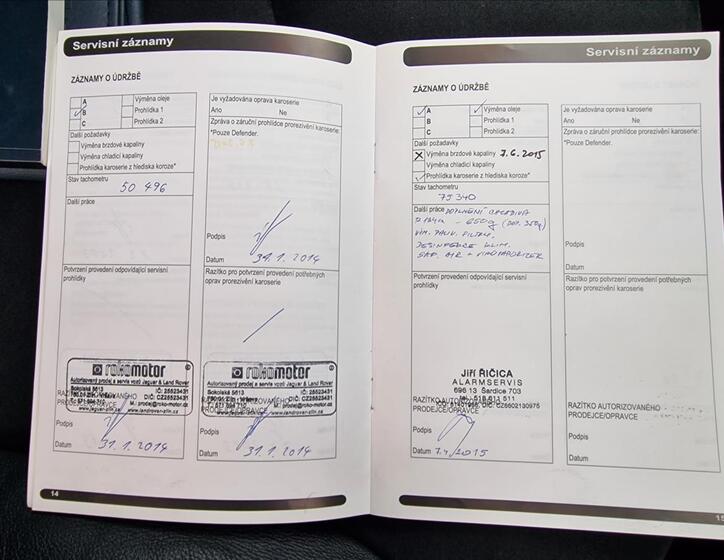 Servisní záznamy
ZÁZNAMY O ÚDRŽBĚ
A
B
C
Výměna oleje
Prohlídka 1
Prohlídka 2
Další požadavky
Výměna brzdové kapaliny
Výměna chladicí kapaliny
Prohlídka karoserie z hlediska koroze*
Stav tachometru
50 496
Další práce
Potvrzení provedení odpovídající servisní
prohlídky
rokomotor
Autorizovaný prodej a servis vozů Jaguar & Land Rover
Sokolská 5613
IČ: 25523431
DIČ: CZ25523431
www.jaguar-zlin.cz
www.landrover-zlin.cz
PRODEJCE/OPRAVCE
Podpis
Datum 31.1.2014
Je vyžadována oprava karoserie
Ano Ne
Zpráva o záruční prohlídce prorezivění karoserie:
*Pouze Defender.
Podpis
Datum 31.1.2014
Razítko pro potvrzení provedení potřebných
oprav prorezivění karoserie
rokomotor
Autorizovaný prodej a servis vozů Jaguar & Land Rover
Sokolská 5613
IČ: 25523431
DIČ: CZ25523431
www.jaguar-zlin.cz
www.landrover-zlin.cz
PRODEJCE/OPRAVCE
Podpis
Datum 31.1.2014
14
Servisní záznamy
ZÁZNAMY O ÚDRŽBĚ
A
B
C
Výměna oleje
Prohlídka 1
Prohlídka 2
Další požadavky
Výměna brzdové kapaliny 7.6.2015
Výměna chladicí kapaliny
Prohlídka karoserie z hlediska koroze*
Stav tachometru
75340
Další práce DOPLNĚNÍ CHLADIVA
R134a - 650g
VÝM. PALIV. FILTRU,
DESINFEKCE KLIM.
Potvrzení provedení odpovídající servisní
prohlídky
JIŘÍ ŘIČICA
ALARMSERVIS
696 13 Šardice 703
RAZÍTKO
PRODEJCE/OPRAVCE
Podpis
Datum
Je vyžadována oprava karoserie
Ano Ne
Zpráva o záruční prohlídce prorezivění karoserie:
*Pouze Defender.
Podpis
Datum
Razítko pro potvrzení provedení potřebných
oprav prorezivění karoserie
RAZÍTKO AUTORIZOVANÉHO
PRODEJCE/OPRAVCE
Podpis
Datum